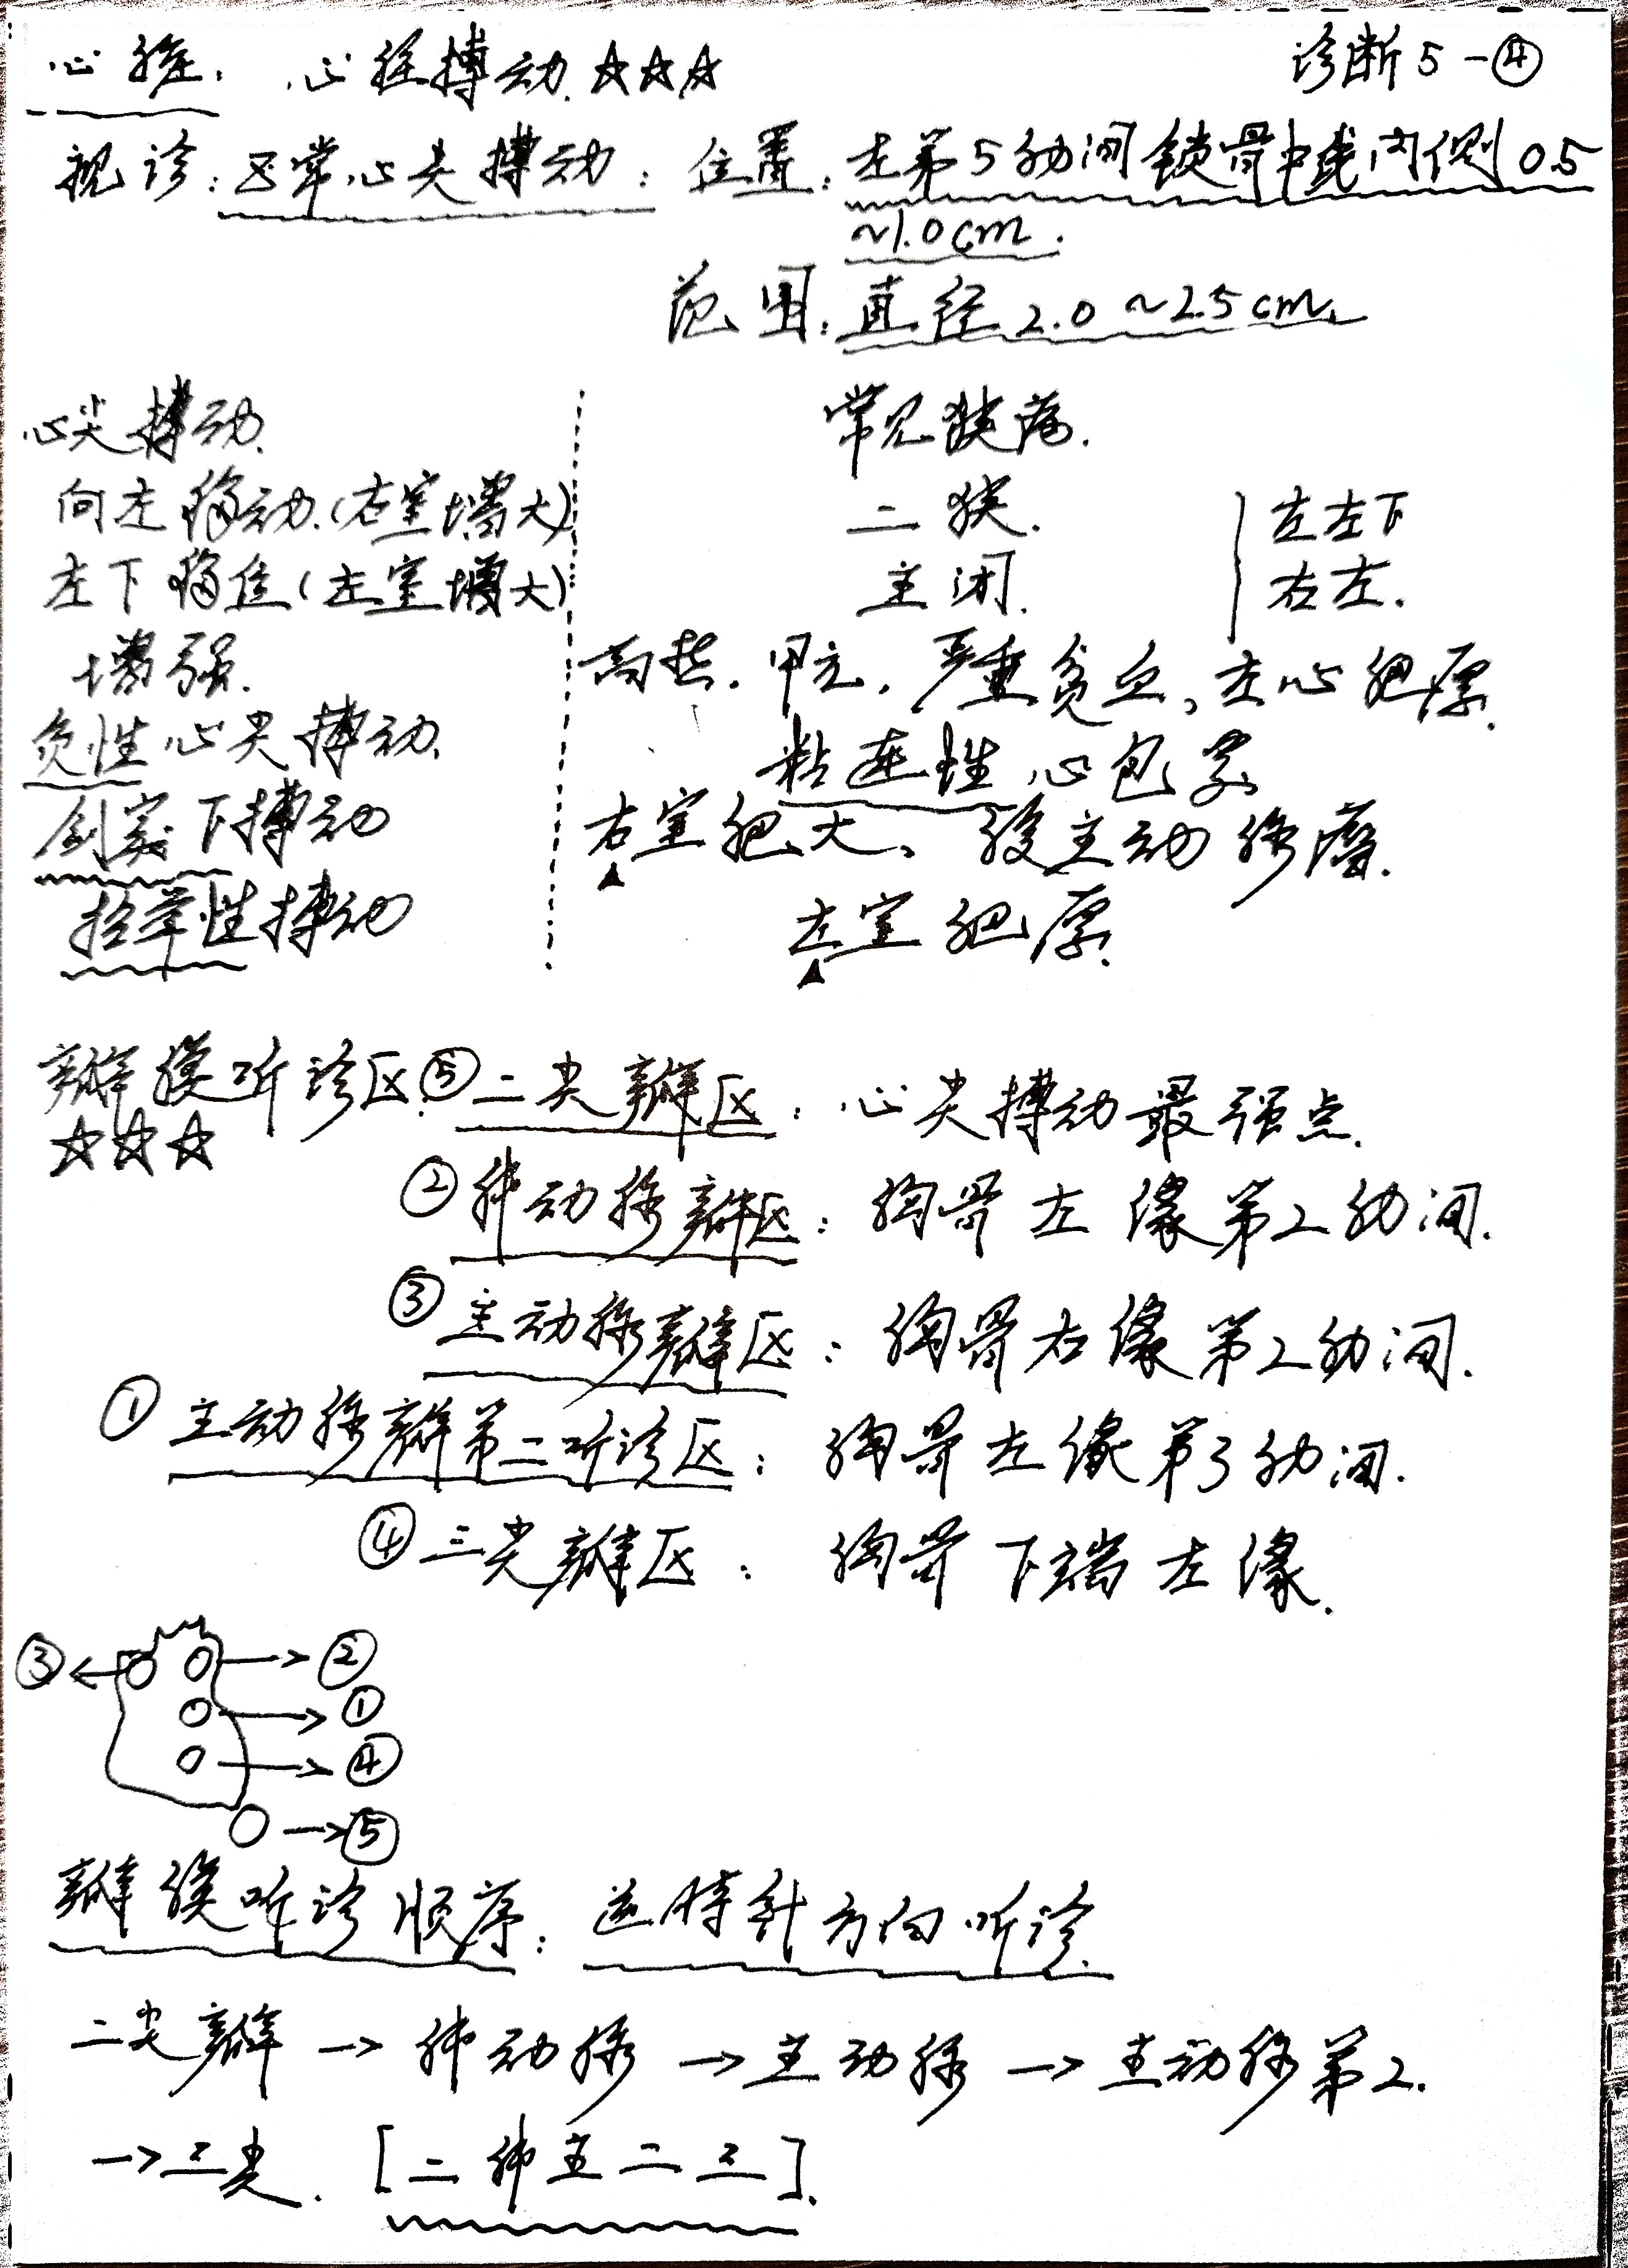 心脏. 心脏搏动. ☆☆☆ 诊断5-④
视诊: 正常心尖搏动: 位置: 左第5肋间锁骨中线内侧0.5
~1.0cm.
范围: 直径2.0~2.5cm.
心尖搏动. 常见疾病.
向左移动.(右室增大) 二狭. 左左下
左下移位(左室增大) 主闭. 右左.
增强. 高热. 甲亢, 严重贫血, 左心肥厚.
负性心尖搏动. 粘连性心包炎
剑突下搏动 右室肥大、腹主动脉瘤.
抬举性搏动 左室肥厚.
瓣膜听诊区. ⑤二尖瓣区: 心尖搏动最强点.
☆☆☆
②肺动脉瓣区: 胸骨左缘第2肋间.
③主动脉瓣区: 胸骨右缘第2肋间.
①主动脉瓣第二听诊区: 胸骨左缘第3肋间.
④三尖瓣区: 胸骨下端左缘.
③ ← → ②
→ ①
→ ④
→ ⑤
瓣膜听诊顺序: 逆时针方向听诊.
二尖瓣 → 肺动脉 → 主动脉 → 主动脉第2.
→三尖. [二肺主二三].